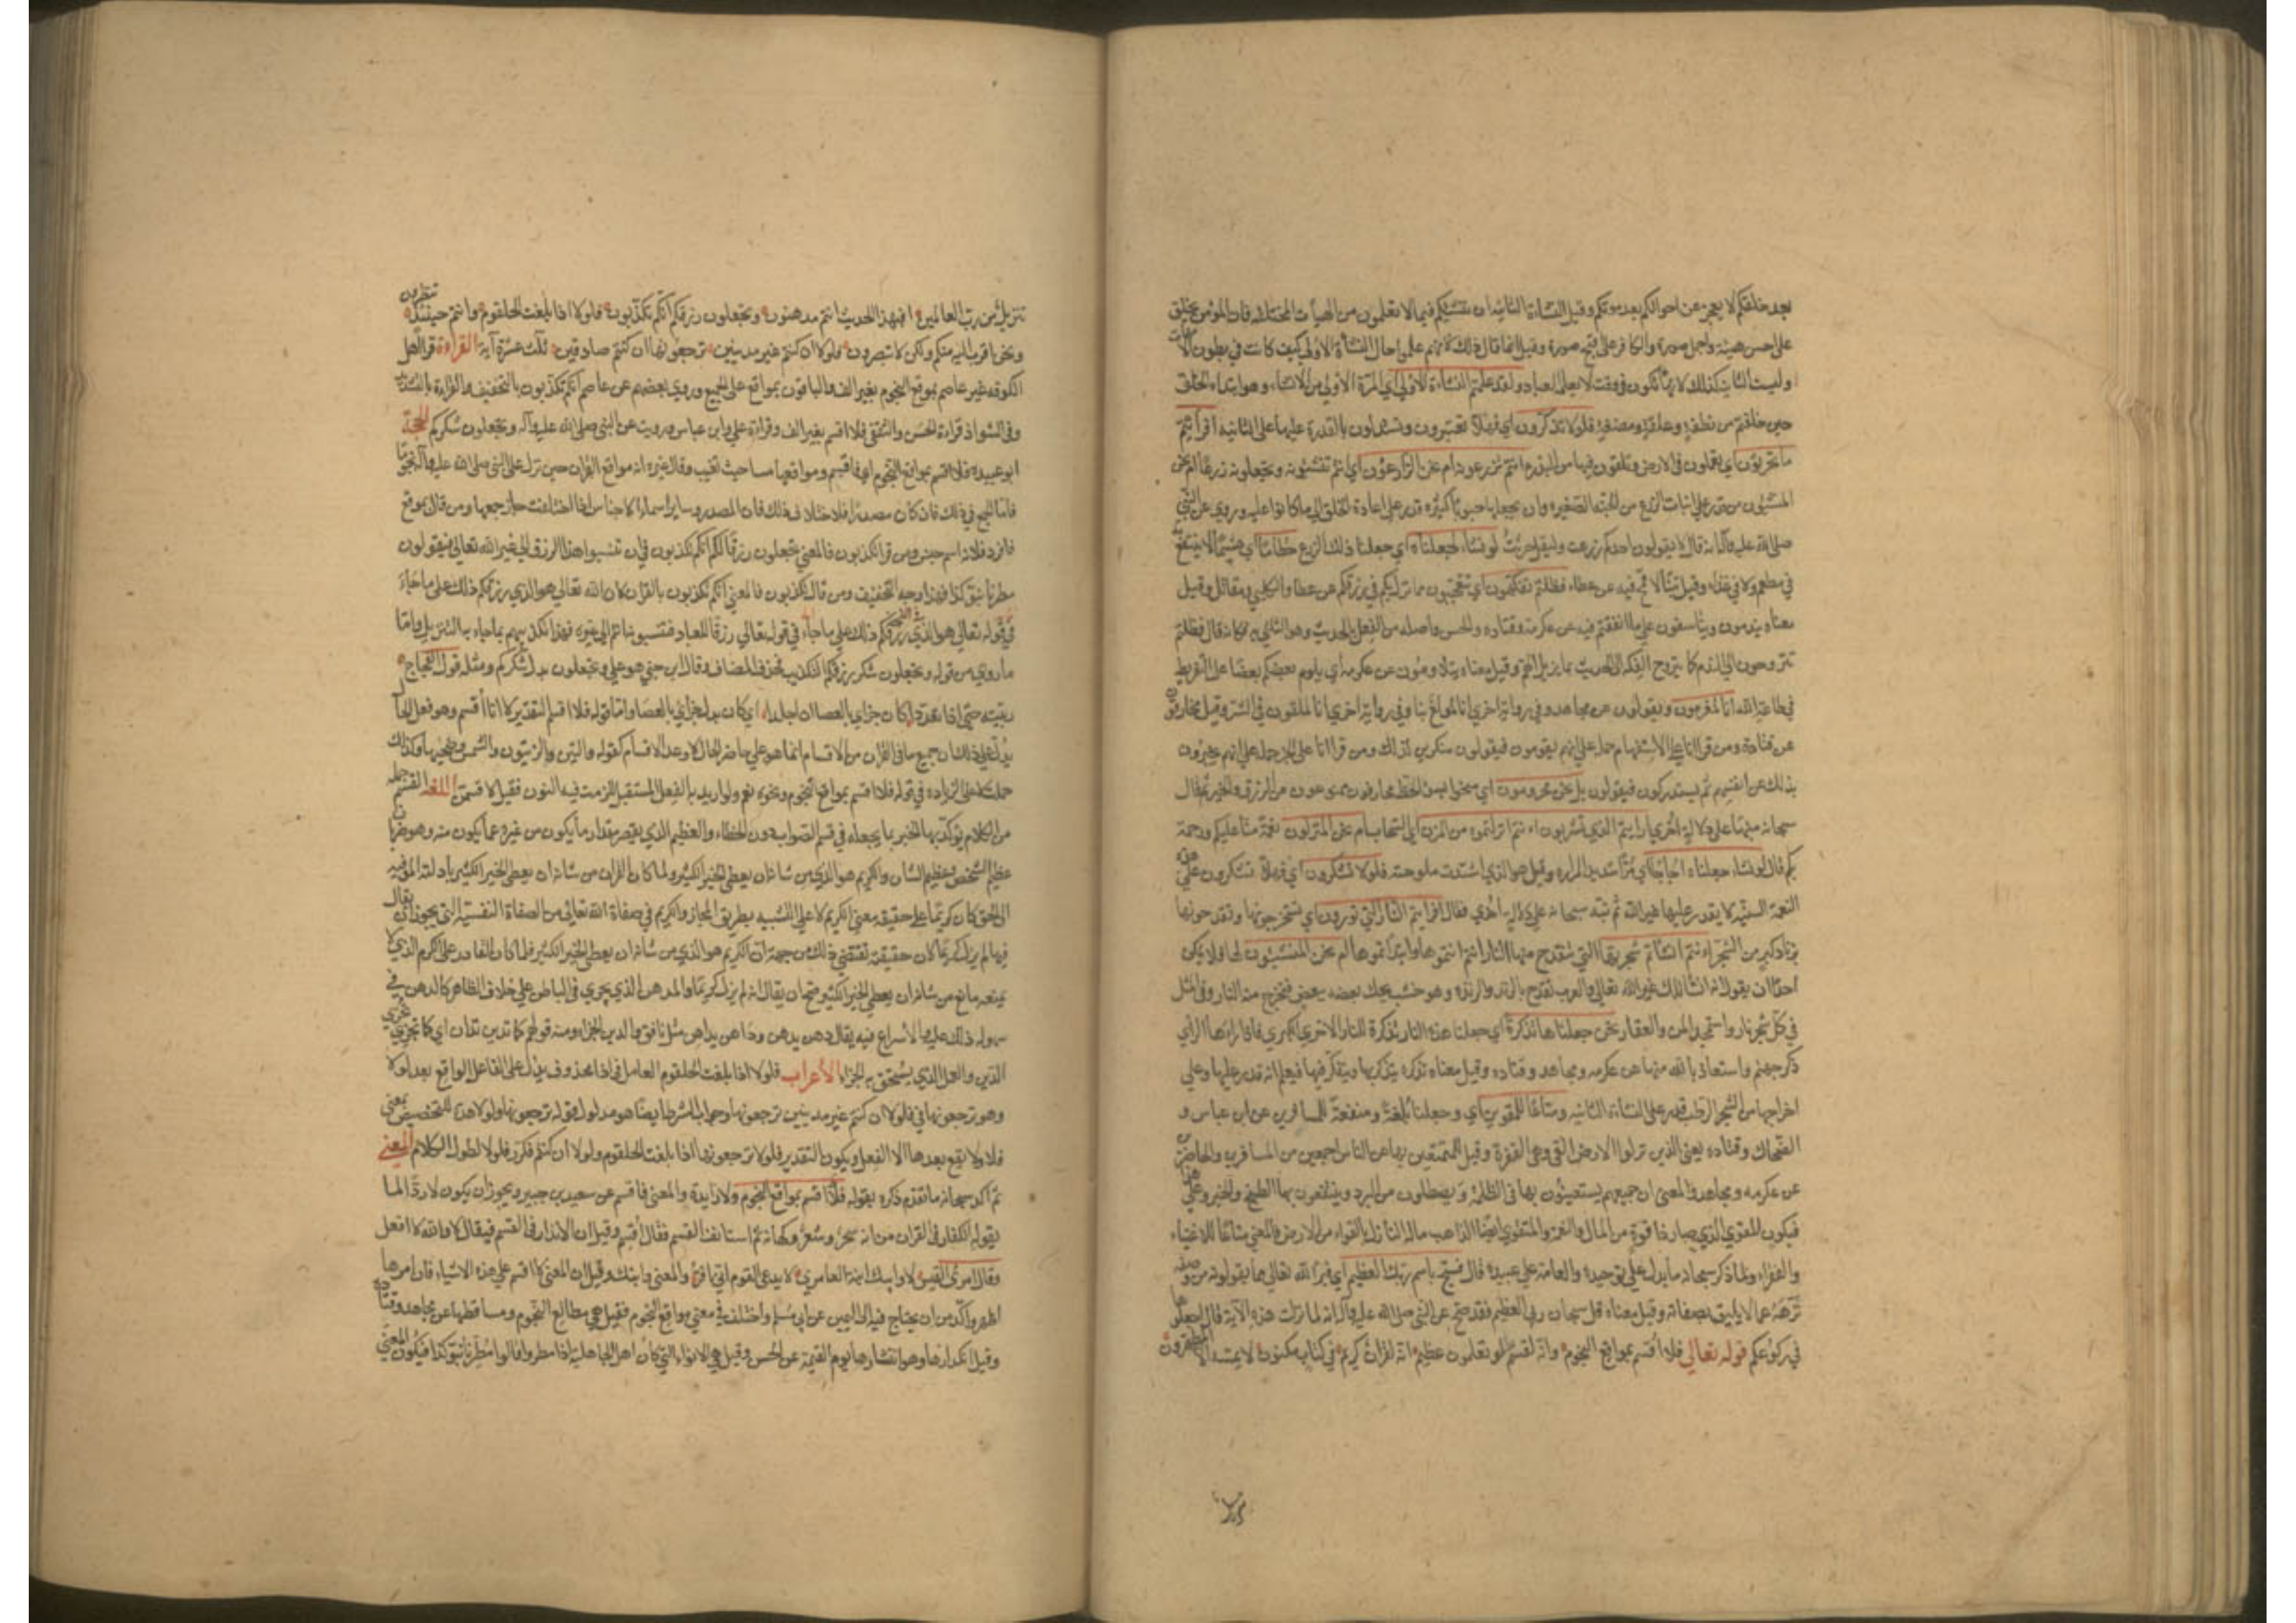 بعد خلقكم لا يعجز عن احوالكم بعد موتكم وقيل النشاة الثانية ان ننشيكم فيما لا تعلمون من الهيأت المختلفة فان المؤمن يخلق
على احسن هيئة واجمل صورة والكافر على اقبح صورة وقيل انما قال ذلك لانهم علموا حال النشأة الاولى كيف كانت في بطون الامهات
وليست الثانية كذلك لانها تكون في وقت لا يعلمه العباد ولقد علمتم النشاءة الاولى اي المرة الاولى من الانشاء وهو ابتداء الخلق
حين خلقتم من نطفة وعلقة ومضغة فلولا تذكرون اي فهلا تعتبرون وتستدلون بالقدرة عليها على الثانية افرأيتم
ما تحرثون اي تعملون في الارض وتلقون فيها من البذر ءانتم تزرعونه ام نحن الزارعون اي انتم تنبتونه وتجعلونه زرعًا ام نحن
المنبتون من قدر على انبات الزرع من الحبة الصغيرة وان يجعلها حبوبًا كثيرة قدر على اعادة الخلق الى ما كانوا عليه وروي عن النبي
صلى الله عليه وآله انه قال لا يقولون احدكم زرعت وليقل حرثت لو نشاء لجعلناه اي جعلنا ذلك الزرع حطامًا اي هشيمًا لا ينتفع به
في مطعم ولا في غذاء وقيل تبنًا لا قمح فيه عن عطاء فظلتم تفكهون اي تتعجبون مما نزل بكم في زرعكم عن عطا والكلبي ومقاتل وقيل
معناه تندمون وتتأسفون على ما انفقتم فيه عن عكرمة وقتادة والحسن واصله من التفكه بالحديث وهو التلهي به فكانه قال فظلتم
تتروحون الى التندم كما يتروح الفكه الى الحديث بما يزيل الهم وقيل معناه يتلاومون عن عكرمة اي يلوم بعضكم بعضًا على التفريط
في طاعة الله انا لمغرمون وتقولون عن مجاهد وفي رواية اخرى انا لمولع بنا وفي رواية اخرى انا لملقون في الشر وقيل محارفون
عن قتادة ومن قرا ائنا على الاستفهام حمله على انهم يقومون فيقولون منكرين لذلك ومن قرا انا على الخبر حمله على انهم مخبرون
بذلك عن انفسهم ثم يستدركون فيقولون بل نحن محرومون اي مبخوسوا الحظ محارفون ممنوعون من الرزق والخير ثم قال
سبحانه منبهًا على دلالة اخرى افرايتم الماء الذي تشربون ءانتم انزلتموه من المزن اي السحاب ام نحن المنزلون نعمة منا عليكم ورحمة
بكم ثم قال لو نشاء جعلناه اجاجًا اي مرًا شديد المرارة وقيل هو الذي اشتدت ملوحته فلولا تشكرون اي فهلا تشكرون على هذه
النعمة السنية لا يقدر عليها غير الله ثم نبه سبحانه على دلالة اخرى فقال افرايتم النار التي تورون اي تستخرجونها وتقدحونها
بزنادكم من الشجر ءانتم انشأتم شجرتها التي تنقدح منها النار اءنتم انبتموها وابتدأتموها ام نحن المنشئون لها فلا يمكن
احدًا ان يقول انه انشأ تلك غير الله تعالى والعرب تقدح بالزند والزندة وهو خشب يحك بعضه ببعض فتخرج منه النار وفي المثل
في كل شجر نار واستمجد المرخ والعفار نحن جعلناها تذكرة اي جعلنا هذه النار تذكرة للنار الاخرى الكبرى فاذا راءها الرائي
ذكر جهنم واستعاذ بالله منها عن عكرمة ومجاهد وقتادة وقيل معناه تذكرة يتذكر بها ويتفكر فيها فيعلم انه من قدر عليها وعلى
اخراجها من الشجر الرطب قدر على النشاة الثانية ومتاعًا للمقوين اي وجعلناها بلغة ومنفعة للمسافرين عن ابن عباس و
الضحاك وقتادة يعني الذين نزلوا الارض القي وهي القفرة وقيل للمستمتعين بها من الناس اجمعين من المسافرين والحاضرين
عن عكرمة ومجاهد والمعنى ان جميعهم يستضيئون بها في الظلمة ويصطلون من البرد وينتفعون بها في الطبخ والخبز وعلى هذا
فيكون المقوي الذي صار ذا قوة من المال والنعمة والمقوي ايضًا الذاهب ماله النازل بالقواء من الارض فالمعنى متاعًا للاغنياء
والفقراء ولما ذكر سبحانه ما يدل على توحيده وانعامه على عبيده قال فسبح باسم ربك العظيم اي فبرأ الله تعالى مما يقولونه من وصفه
ونزهه عما لا يليق بصفاته وقيل معناه قل سبحان ربي العظيم فقد صح عن النبي صلى الله عليه وآله انه لما نزلت هذه الآية قال اجعلوها
في ركوعكم قوله تعالى فلا اقسم بمواقع النجوم وانه لقسم لو تعلمون عظيم انه لقران كريم في كتاب مكنون لا يمسه الا المطهرون
تنزيل من رب العالمين افبهذا الحديث انتم مدهنون وتجعلون رزقكم انكم تكذبون فلولا اذا بلغت الحلقوم وانتم حينئذ تنظرون
ونحن اقرب اليه منكم ولكن لا تبصرون فلولا ان كنتم غير مدينين ترجعونها ان كنتم صادقين ثلث عشرة آية القراءة قرا اهل
الكوفة غير عاصم بموقع النجوم بغير الف والباقون بمواقع على الجمع وروى بعضهم عن عاصم انكم تكذبون بالتخفيف والقراءة بالتشديد
وفي الشواذ قراءة الحسن والثقفي فلا اقسم بغير الف وقراءة علي وابن عباس ورويت عن النبي صلى الله عليه وآله وتجعلون شكركم الحجة
ابو عبيدة فلا اقسم بمواقع النجوم اي فاقسم ومواقعها مساقطها حيث تغيب وقال غيره انه مواقع القران حين نزل على النبي صلى الله عليه وآله نجومًا
فاما الجمع في ذلك فان كان مصدرًا فلاختلاف ذلك فان المصدر وساير اسماء الاجناس اذا اختلفت جاز جمعها ومن قال بموقع
فافرد فلانه اسم جنس ومن قرا تكذبون فالمعنى تجعلون رزقكم الذي رزقكم انكم تكذبون في ان تنسبوا هذا الرزق الى غير الله تعالى فتقولون
مطرنا بنوء كذا فهذا وجه التخفيف ومن قال تكذبون فالمعنى انكم تكذبون بالقران لان الله تعالى هو الذي رزقكم ذلك على ما جاء
في قوله تعالى هو الذي رزقكم ذلك على ما جاء في قوله تعالى رزقًا للعباد فنسبتموه انتم الى غيره فهذا تكذيبهم بما جاء به التنزيل واما
ما روي من قوله وتجعلون شكركم فالمعنى تجعلون شكر رزقكم التكذيب فحذف المضاف وقال ابن جني هو على وتجعلون بدل شكركم ومثله قول العجاج
ربيته حتى اذا تمعددا كان جزائي بالعصا ان اجلدا اي كان بدل جزائي بالعصا واما قوله فلا اقسم التقدير لانا اقسم وهو فعل الحال
يدل على ذلك ان جميع ما في القران من الاقسام انما هو على حاضر الحال لا وعد الاقسام كقوله والتين والزيتون والشمس وضحيها وكذلك
حملت لا على الزيادة في قوله فلا اقسم بمواقع النجوم ونحوه نعم ولو اريد به الفعل المستقبل للزمت فيه النون فقيل لا قسمن اللغة القسم جملة
من الكلام يؤكد بها الخبر بما يجعله في قسم الصواب دون الخطاء والعظيم الذي يقصر مقدار ما يكون من غيره عما يكون منه وهو ضربان
عظيم الشخص وعظيم الشان والكريم هو الذي من شانه ان يعطي الخير الكثير ولما كان القران من شانه ان يعطي الخير الكثير بادلته المؤدية
الى الحق كان كريمًا على حقيقة معنى الكريم لا على التشبيه بطريق المجاز والكريم في صفاة الله تعالى من الصفاة النفسية التي يجوز ان يقال
فيها لم يزل كريمًا لان حقيقته تقتضي ذلك من جهة ان الكريم هو الذي من شانه ان يعطي الخير الكثير فلما كان القادر على الكرم الذي لا
يمنعه مانع من شانه ان يعطي الخير الكثير صح ان يقال انه لم يزل كريمًا والمدهن الذي يجري في الباطن على خلاف الظاهر كالدهن في
سهولة ذلك عليه والاسراع فيه يقال دهن يدهن وداهن يداهن مثل نافق والدين الجزاء ومنه قولهم كما تدين تدان اي كما تجزي تجزى
الدين والعمل الذي يستحق به الجزاء الاعراب فلولا اذا بلغت الحلقوم العامل في اذا محذوف يدل على الفاعل الواقع بعد لولا
وهو ترجعونها في فلولا ان كنتم غير مدينين ترجعونها وجواب الشرط ايضًا هو مدلول قوله ترجعونها ولولا هذه للتحضيض بمعنى
هلا ولا يقع بعدها الا الفعل ويكون التقدير فلولا ترجعونها اذا بلغت الحلقوم ولولا ان كنتم فكرر فلولا لطول الكلام المعنى
ثم اكد سبحانه ما تقدم ذكره بقوله فلا اقسم بمواقع النجوم ولا زايدة والمعنى فاقسم عن سعيد بن جبير ويجوز ان يكون لا ردًا لما
يقوله الكفار في القران من انه سحر وشعر وكهانة ثم استانف القسم فقال اقسم وقيل ان لا تزاد في القسم فيقال لا والله لا افعل
وقال امرئ القيس لا وابيك ابنة العامري لا يدعي القوم اني افر والمعنى وابيك وقيل ان المعنى لا اقسم على هذه الاشياء فان امرها
اظهر واكد من ان يحتاج فيه الى اليمين عن ابي مسلم واختلف في معنى مواقع النجوم فقيل هي مطالع النجوم ومساقطها عن مجاهد وقتادة
وقيل انكدارها وهو انتشارها يوم القيمة عن الحسن وقيل هي الانواء التي كان اهل الجاهلية اذا مطروا قالوا مطرنا بنوء كذا فيكون المعنى